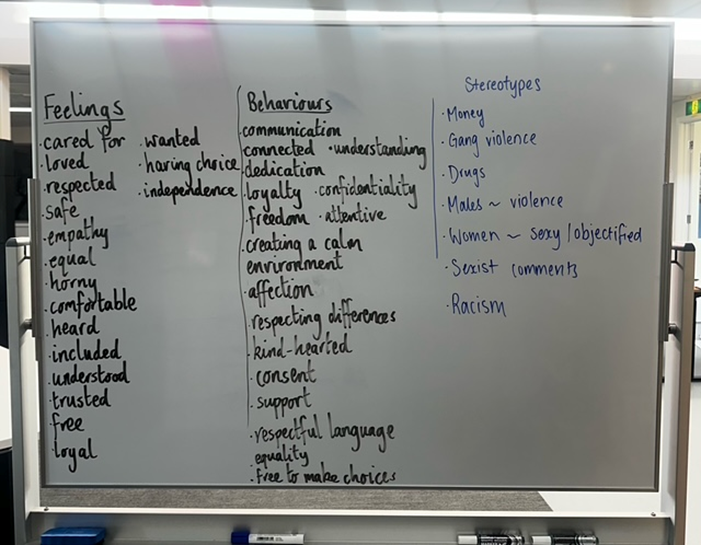 Feelings
·cared for
·loved
·respected
·safe
·empathy
·equal
·horny
·comfortable
·heard
·included
·understood
·trusted
·free
·loyal
·wanted
·having choice
·independence
Behaviours
·communication
·connected ·understanding
·dedication
·loyalty ·confidentiality
·freedom ·attentive
·creating a calm
environment
·affection
·respecting differences
·kind-hearted
·consent
·support
·respectful language
·equality
·free to make choices
Stereotypes
·Money
·Gang violence
·Drugs
·Males ~ violence
·Women ~ sexy/objectified
·Sexist comments
·Racism